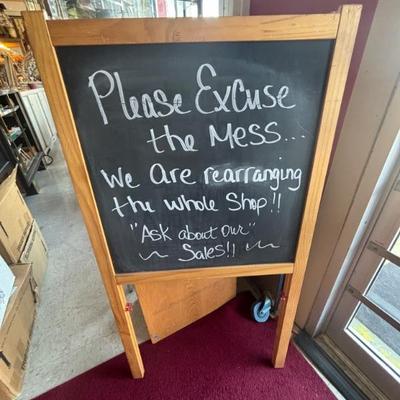 Please Excuse
the Mess...
We Are rearranging
the whole Shop!!
"Ask about our"
~ Sales!! ~